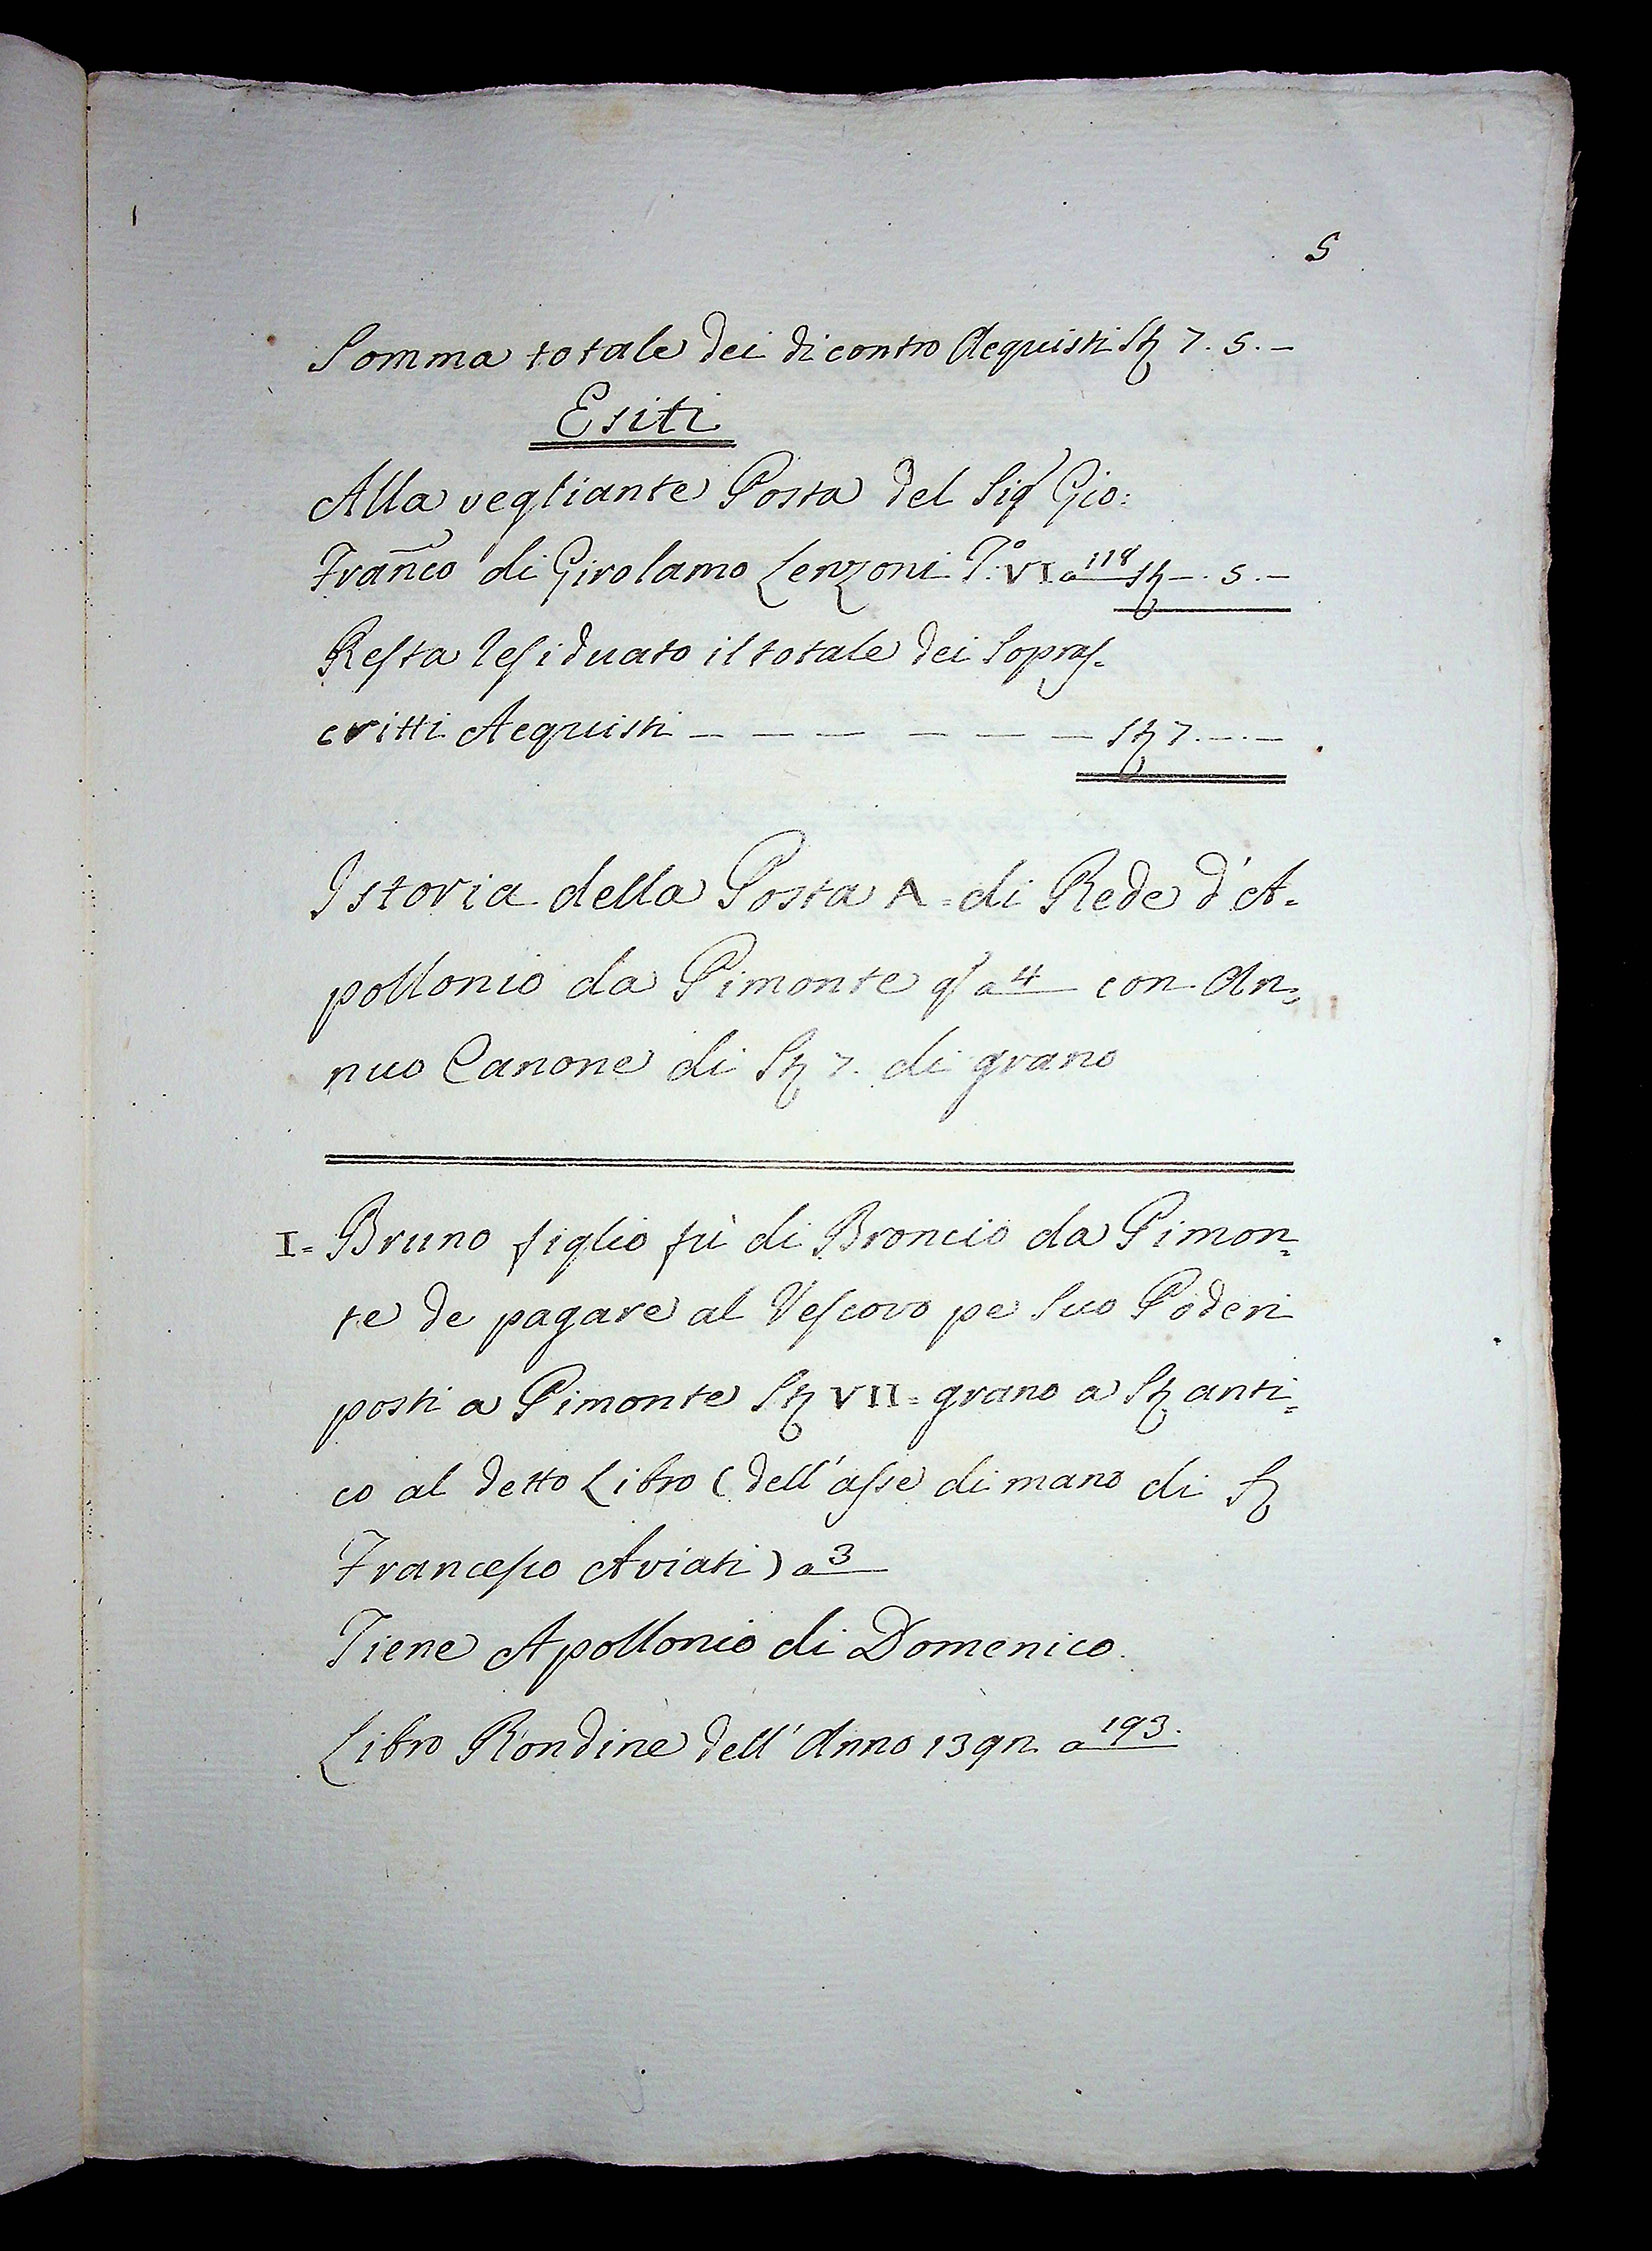 5
Somma totale dei di contro Acquisti St 7. 5. –
Esiti
Alla vegliante Posta del Sig.r Gio:
Fran̄co di Girolamo Lenzoni T.º VI a 118 St –. 5. –
Resta residuato il totale dei sopras-
critti Acquisti – – – – – – St 7. –. –
Istoria della Posta A = di Rede d'A=
pollonio da Pimonte qſ a 4 con An=
nuo Canone di St 7. di grano
I = Bruno figlio fù di Broncio da Pimon=
te de pagare al Vescovo pe suo Poderi
posti a Pimonte St VII = grano a St anti=
co al detto Libro (dell'asse di mano di
Francesco Aviati) a 3
Tiene Apollonio di Domenico.
Libro Rondine dell'Anno a 193.